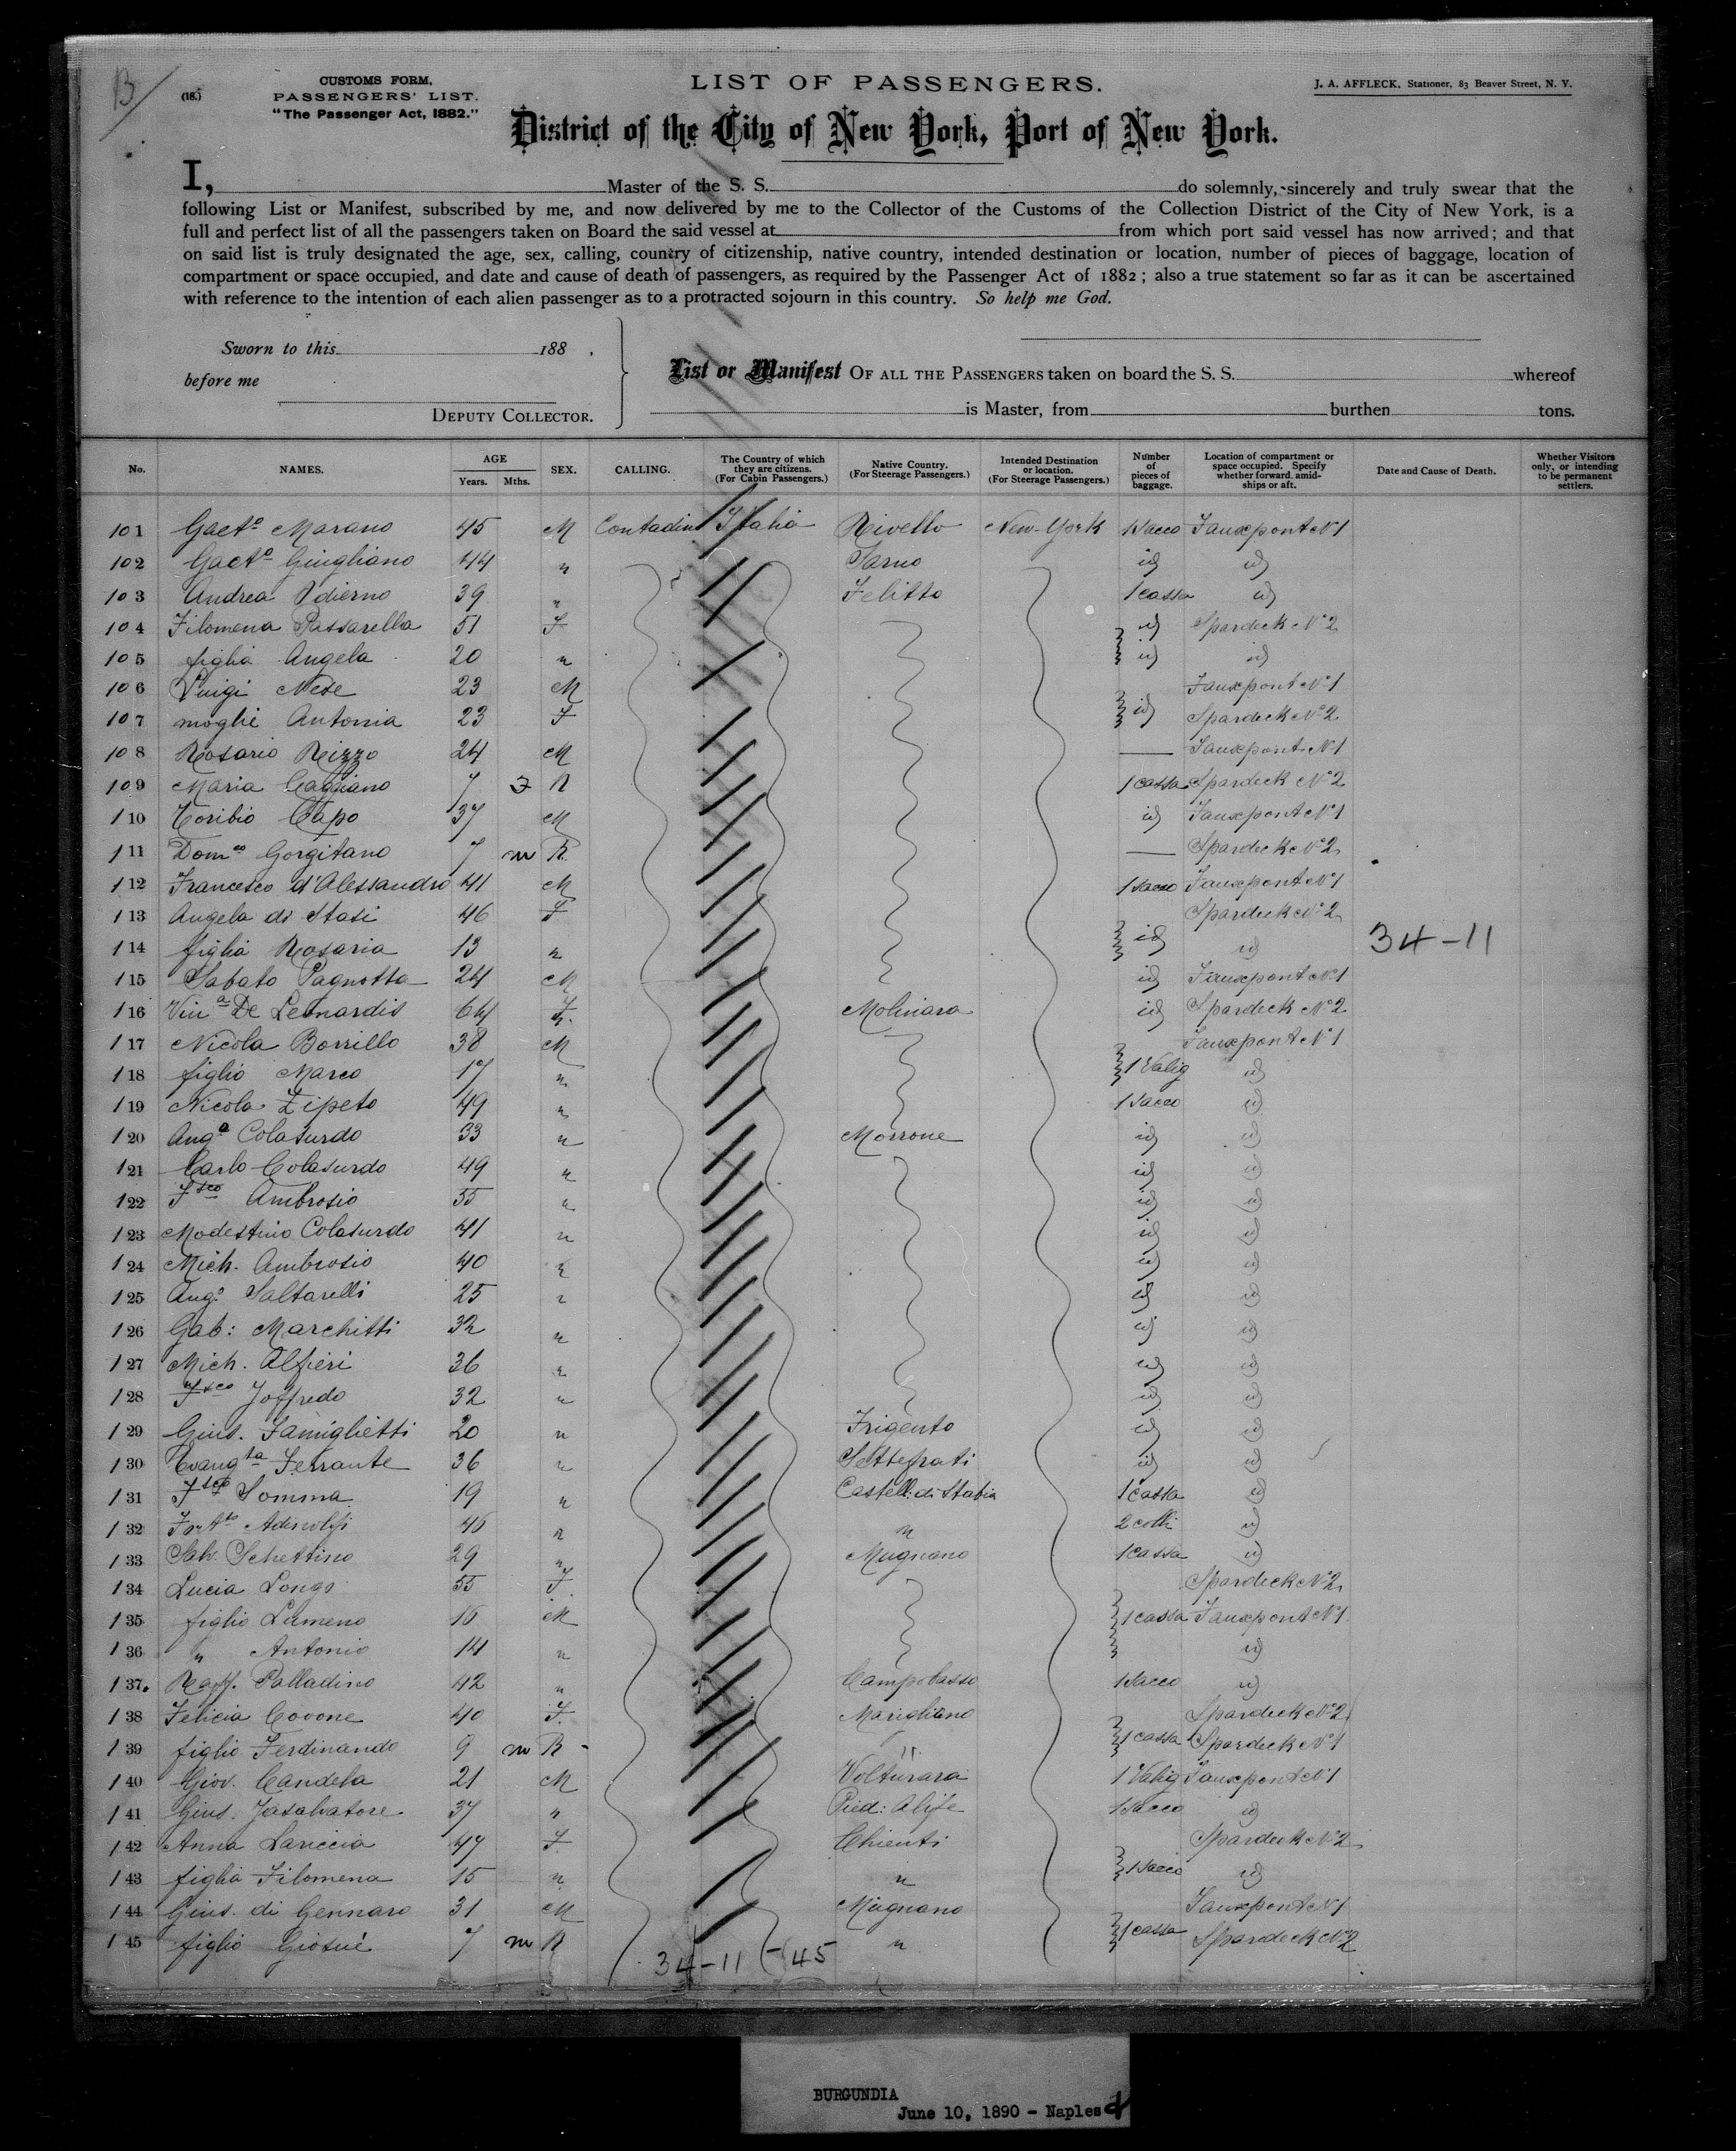 B/
(18.)
CUSTOMS FORM,
PASSENGERS' LIST.
"The Passenger Act, 1882."
LIST OF PASSENGERS.
J. A. AFFLECK, Stationer, 83 Beaver Street, N. Y.
District of the City of New York, Port of New York.
I, Master of the S. S. do solemnly, sincerely and truly swear that the
following List or Manifest, subscribed by me, and now delivered by me to the Collector of the Customs of the Collection District of the City of New York, is a
full and perfect list of all the passengers taken on Board the said vessel at from which port said vessel has now arrived; and that
on said list is truly designated the age, sex, calling, country of citizenship, native country, intended destination or location, number of pieces of baggage, location of
compartment or space occupied, and date and cause of death of passengers, as required by the Passenger Act of 1882; also a true statement so far as it can be ascertained
with reference to the intention of each alien passenger as to a protracted sojourn in this country. So help me God.
Sworn to this 188 ,
before me
DEPUTY COLLECTOR.
List or Manifest OF ALL THE PASSENGERS taken on board the S. S. whereof
is Master, from burthen tons.
No. NAMES. AGE Years. Mths. SEX. CALLING. The Country of which they are citizens. (For Cabin Passengers.) Native Country. (For Steerage Passengers.) Intended Destination or location. (For Steerage Passengers.) Number of pieces of baggage. Location of compartment or space occupied. Specify whether forward, amidships or aft. Date and Cause of Death. Whether Visitors only, or intending to be permanent settlers.
101 Gaeto Marano 45 M Contadin Italia Rivello New-York 1 sacco Fauxpont No 1
102 Gaeto Giugliano 44 " Sarno id id
103 Andrea Odierno 39 " Felitto 1 cassa id
104 Filomena Passarella 51 F id Spardeck No 2
105 figlia Angela 20 " id id
106 Luigi Nese 23 M Fauxpont No 1
107 moglie Antonia 23 F id Spardeck No 2
108 Rosario Rizzo 24 M — Fauxpont No 1
109 Maria Caggiano 7 F R 1 cassa Spardeck No 2
110 Toribio Capo 37 M id Fauxpont No 1
111 Domco Gorgitano 7 m R — Spardeck No 2
112 Francesco d'Alessandro 41 M 1 sacco Fauxpont No 1
113 Angela di Stasi 46 F Spardeck No 2
114 figlia Rosaria 13 " id id 34-11
115 Sabato Pagnotta 24 M id Fauxpont No 1
116 Vina De Leonardis 64 F. Molinara id Spardeck No 2
117 Nicola Borrillo 38 M Fauxpont No 1
118 figlio Marco 17 " 1 Valig id
119 Nicola Zipeto 49 " 1 sacco id
120 Anga Colasurdo 33 " Morrone id id
121 Carlo Colasurdo 49 " id id
122 Fsco Ambrosio 55 " id id
123 Modestino Colasurdo 41 " id id
124 Mich. Ambrosio 40 " id id
125 Ango Saltarelli 25 " id id
126 Gab: Marchitti 32 " id id
127 Mich. Alfieri 36 " id id
128 Fsco Joffredo 32 " id id
129 Gius. Famiglietti 20 " Frigento id id
130 Evangta Ferrante 36 " Settefrati id id
131 Fsco Somma 19 " Castell: di Stabia 1 cassa id
132 Forto Adinolfi 45 " " 2 colli id
133 Salv. Schettino 29 " Mugnano 1 cassa id
134 Lucia Longo 55 F. Spardeck No 2
135 figlio 16 M 1 cassa Fauxpont No 1
136 " Antonio 14 " id
137. Raff. Palladino 42 " Campobasso 1 sacco id
138 Felicia Covone 40 F. Marigliano Spardeck No 2
139 figlio Ferdinando 9 m R " 1 cassa Spardeck No 1
140 Giov. Candela 21 M Volturara 1 Valig Fauxpont No 1
141 Gius. Jasalvatore 37 " Pied: Alife 1 sacco id
142 Anna Lariccia 47 F. Chienti Spardeck No 2
143 figlia Filomena 15 " " 1 sacco id
144 Gius. di Gennaro 31 M Mugnano Fauxpont No 1
145 figlio Giosué 7 m R " 1 cassa Spardeck No 2
34-11 (-45
BURGUNDIA
June 10, 1890 - Naples